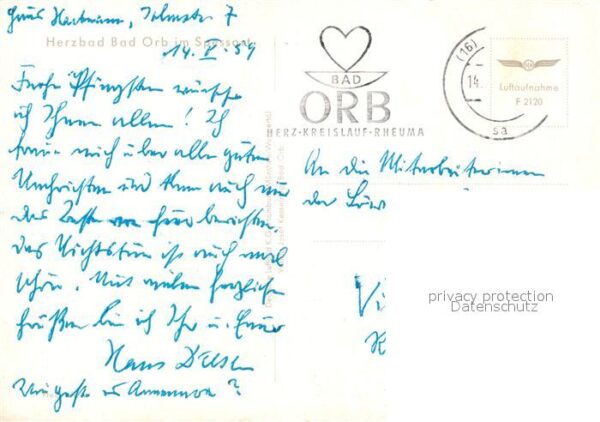 Haus Hartmann,
Herzbad Bad Orb im Spessart
14. V. 59
Frohe Pfingsten wünsche
ich Ihnen allen! Ich
freue mich über alle guten
Nachrichten und kann auch nur
das Beste von hier berichten.
Das Nichtstun ist auch mal
schön. Mit vielen herzlichen
Grüßen bin ich Ihr u. Euer
Hans
Wie geht es Annemarie?
BAD
ORB
HERZ-KREISLAUF-RHEUMA
(16)
14.
sa
Luftaufnahme
F 2120
An die Mitarbeiterinnen
der
privacy protection
Datenschutz